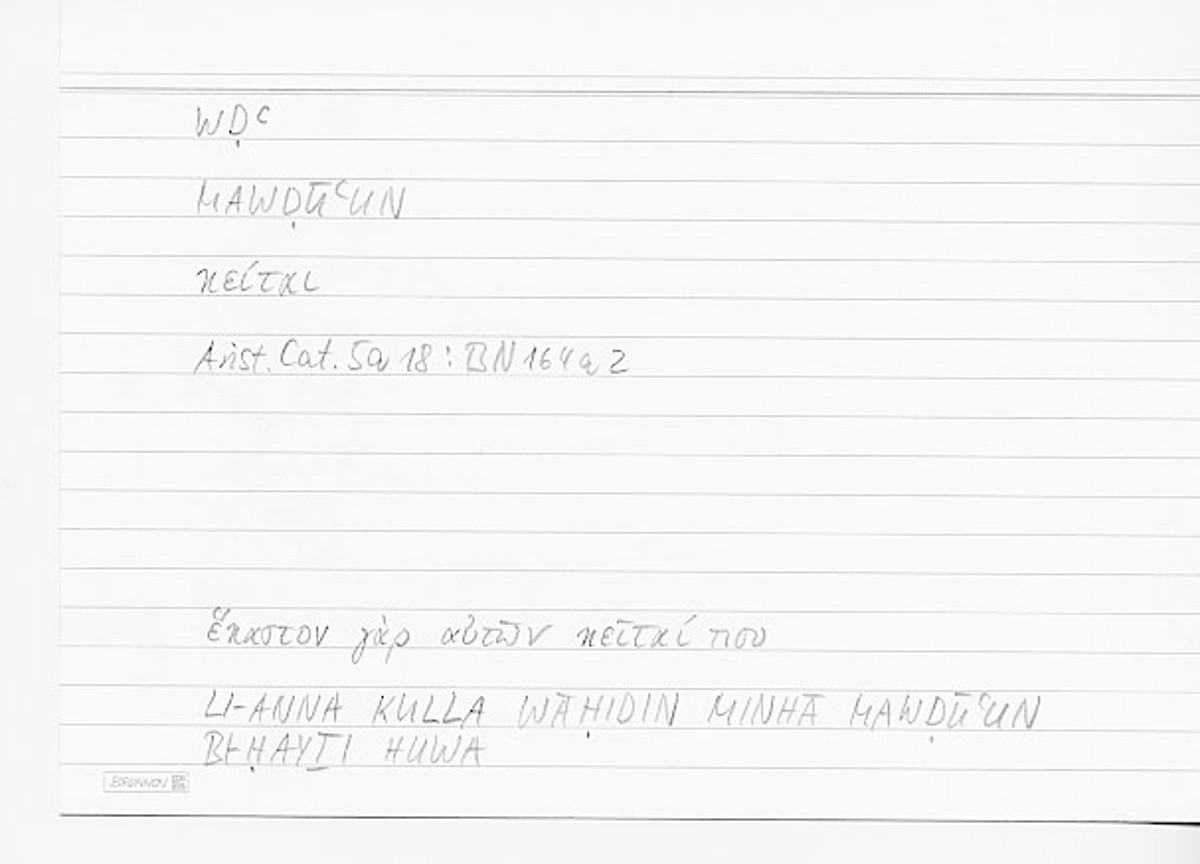 WḌʿ
MAWḌŪʿUN
κεῖται
Arist. Cat. 5a 18 : BN 164 a 2
ἕκαστον γὰρ αὐτῶν κεῖταί που
LI-ANNA KULLA WĀḤIDIN MINHĀ MAWḌŪʿUN
BI-ḤAYṮI HUWA
BRUNNEN